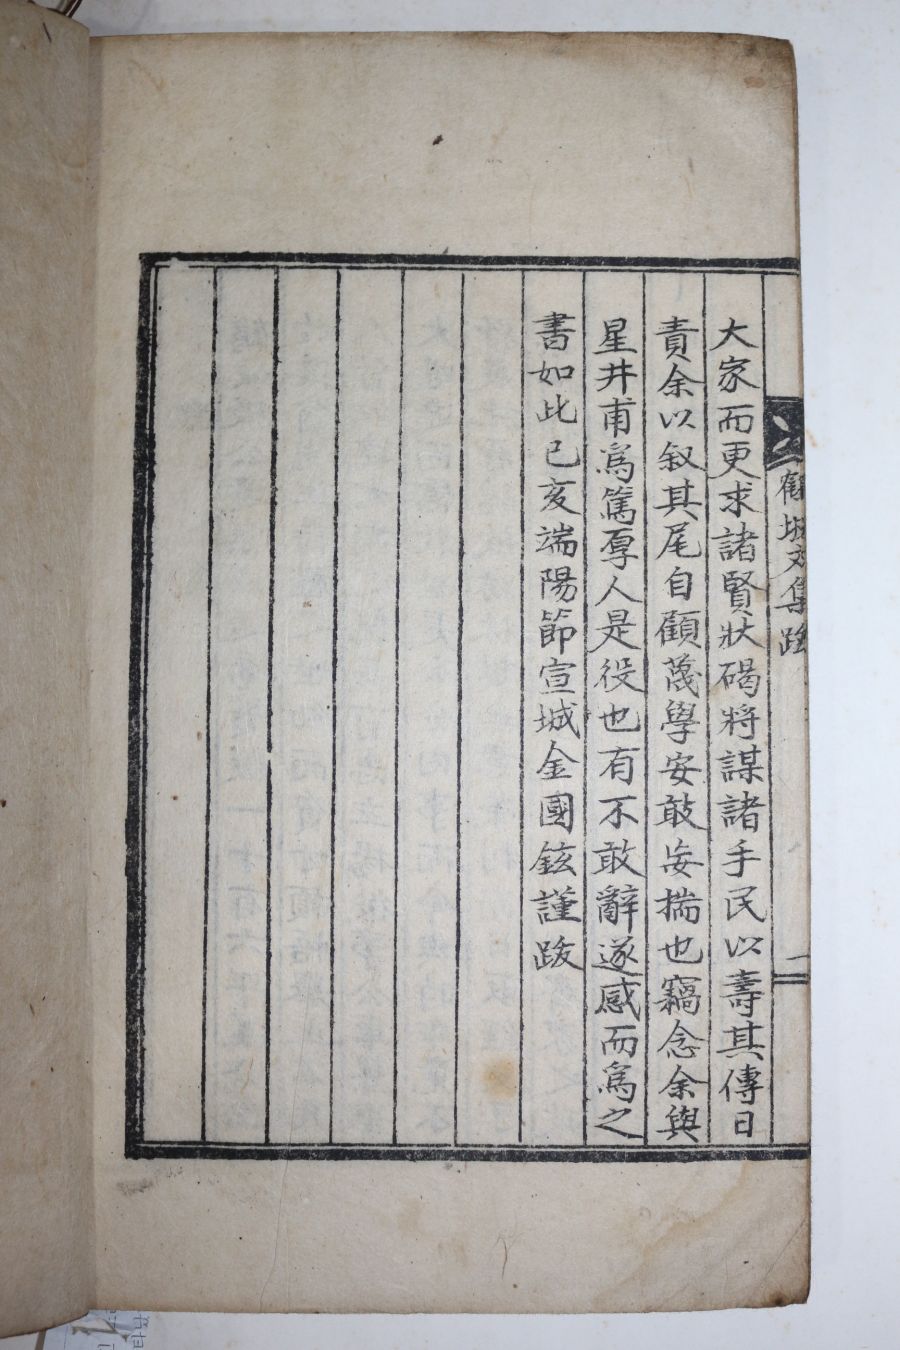 大家而更求諸賢狀碣將謀諸手民以壽其傳日
責余以叙其尾自顧蔑學安敢妄揣也竊念余與
星井甫爲篤厚人是役也有不敢辭遂感而爲之
書如此已亥端陽節宣城金國鉉謹跋
城文集跋